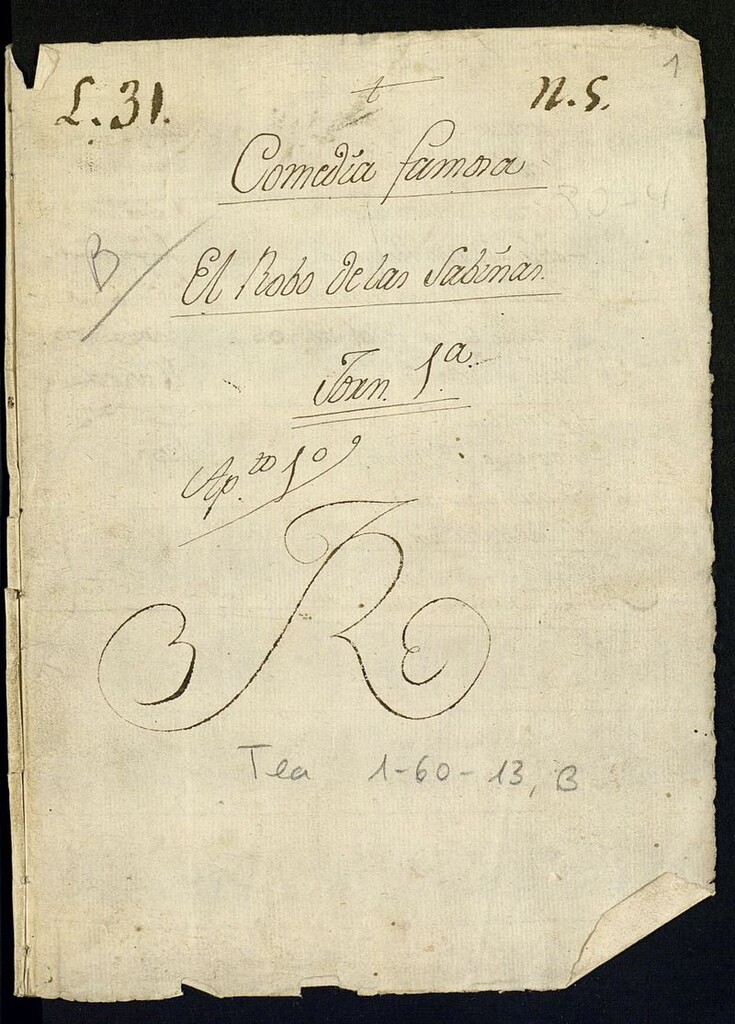 1
L. 31. t n. 5.
Comedia famosa
B
El Robo de las Sabinas.
Jorn. 1.a
Ap.to 1o
R
Tea 1-60-13, B